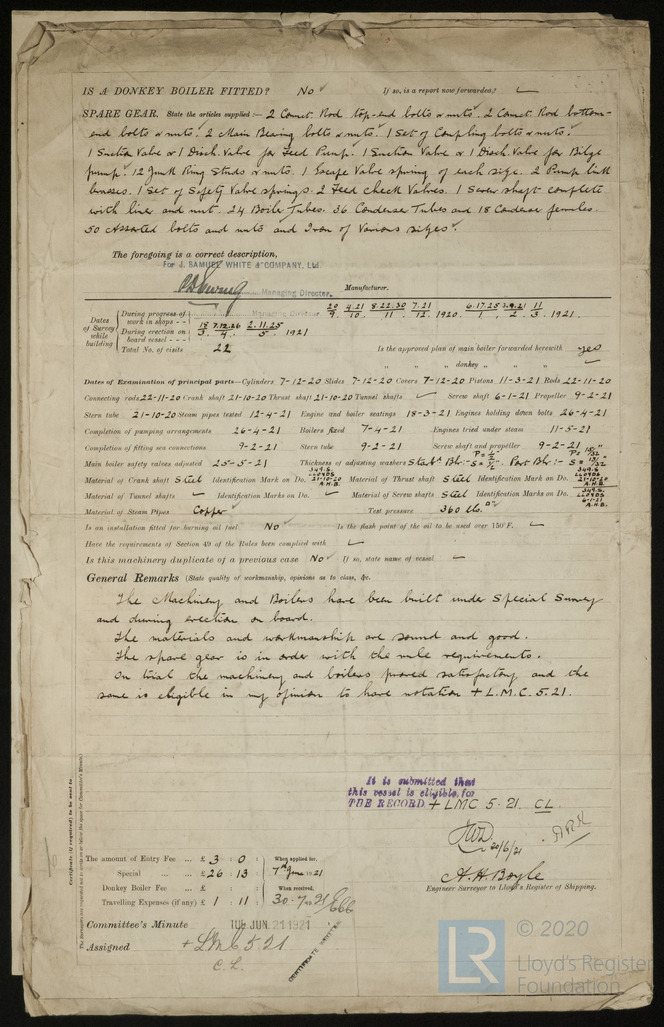 IS A DONKEY BOILER FITTED? No If so, is a report now forwarded?
SPARE GEAR. State the articles supplied:— 2 Connct. Rod top-end bolts & nuts. 2 Connct. Rod bottom-
end bolts & nuts. 2 Main Bearing bolts & nuts. 1 Set of Coupling bolts & nuts.
1 Suction Valve & 1 Disch. Valve for Feed Pump. 1 Suction Valve & 1 Disch. Valve for Bilge
pump. 12 Junk Ring Studs & nuts. 1 Escape Valve spring of each size. 2 Pump link
brasses. 1 Set of Safety Valve springs. 2 Feed Check Valves. 1 Screw shaft complete
with liner and nut. 24 Boiler Tubes. 36 Condenser Tubes and 18 Condenser ferrules.
50 Assorted bolts and nuts and Iron of Various sizes.
The foregoing is a correct description,
For J. SAMUEL WHITE & COMPANY, Ltd.
Managing Director, Manufacturer.
Dates of Survey while building
During progress of work in shops - - 20/9. 4.21/10. 8.22.30/11. 7.21/12. 1920. 6.17.25/1. 11/3. 1921.
During erection on board vessel - - - 18/3. 7.12.26/4. 2.11.25/5. 1921
Total No. of visits 22 Is the approved plan of main boiler forwarded herewith yes
" " " donkey " " "
Dates of Examination of principal parts—Cylinders 7-12-20 Slides 7-12-20 Covers 7-12-20 Pistons 11-3-21 Rods 22-11-20
Connecting rods 22-11-20 Crank shaft 21-10-20 Thrust shaft 21-10-20 Tunnel shafts Screw shaft 6-1-21 Propeller 9-2-21
Stern tube 21-10-20 Steam pipes tested 12-4-21 Engine and boiler seatings 18-3-21 Engines holding down bolts 26-4-21
Completion of pumping arrangements 26-4-21 Boilers fixed 7-4-21 Engines tried under steam 11-5-21
Completion of fitting sea connections 9-2-21 Stern tube 9-2-21 Screw shaft and propeller 9-2-21
Main boiler safety valves adjusted 25-5-21 Thickness of adjusting washers Starbd Blr:- Port Blr:-
Material of Crank shaft Steel Identification Mark on Do. 349.S. LLOYDS 21-10-20 A.H.B. Material of Thrust shaft Steel Identification Mark on Do. 349.S. LLOYDS 21-10-20 A.H.B.
Material of Tunnel shafts Identification Marks on Do. Material of Screw shafts Steel Identification Marks on Do. 349.S. LLOYDS 6-1-21 A.H.B.
Material of Steam Pipes Copper Test pressure 360 lbs.
Is an installation fitted for burning oil fuel No Is the flash point of the oil to be used over 150°F.
Have the requirements of Section 49 of the Rules been complied with
Is this machinery duplicate of a previous case No If so, state name of vessel
General Remarks (State quality of workmanship, opinions as to class, &c.
The Machinery and Boilers have been built under Special Survey
and during erection on board.
The materials and workmanship are sound and good.
The spare gear is in order with the rule requirements.
On trial the machinery and boilers proved satisfactory and the
same is eligible in my opinion to have notation + L.M.C. 5.21.
It is submitted that
this vessel is eligible for
THE RECORD. + LMC 5.21. CL.
20/6/21
A.H. Boyle
Engineer Surveyor to Lloyd's Register of Shipping.
Certificate (if required) to be sent to
The amount of Entry Fee ... £ 3 : 0 : When applied for,
Special ... £ 26 : 13 : 7th June 1921
Donkey Boiler Fee ... £ : : When received,
Travelling Expenses (if any) £ 1 : 11 : 30.7.1921
Committee's Minute TUE. JUN. 21 1921
Assigned + LMC 5 21
C.L.
CERTIFICATE WRITTEN
LR
© 2020
Lloyd's Register
Foundation